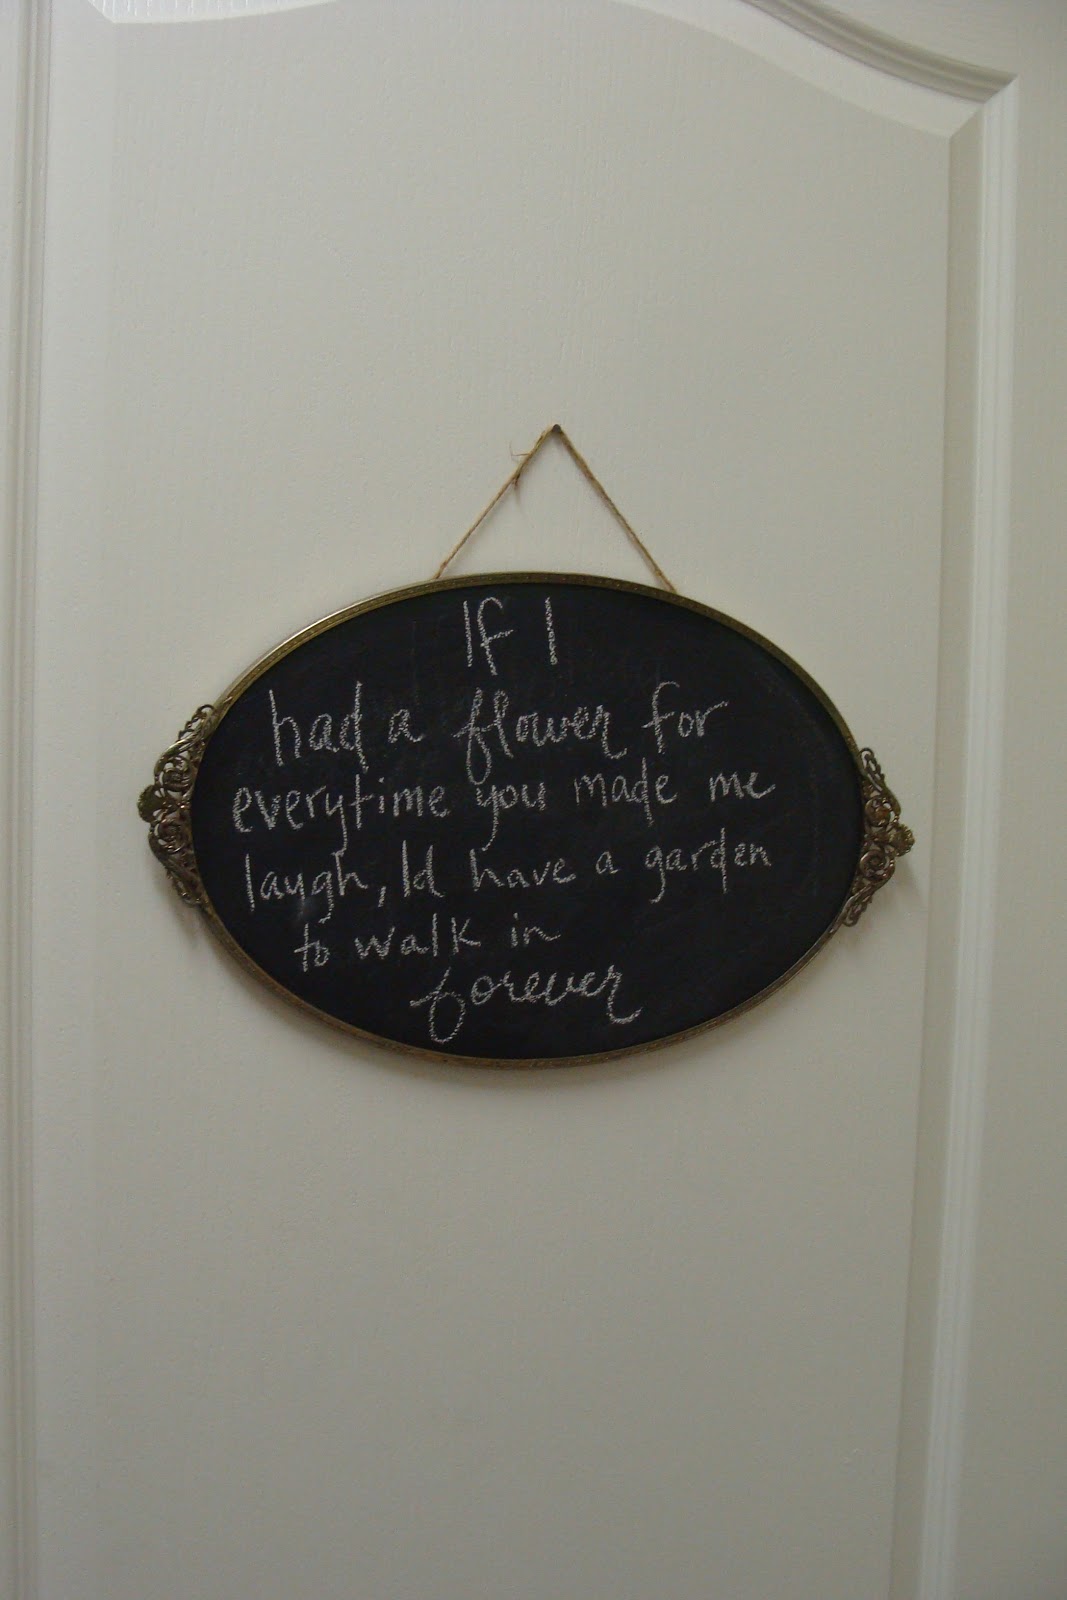 If I
had a flower for
everytime you made me
laugh, Id have a garden
to walk in
forever